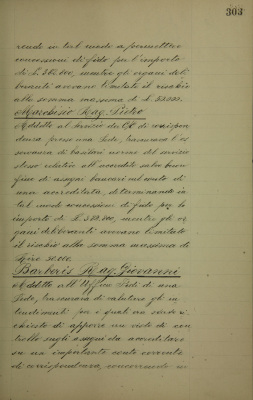 303
rendo in tal modo a permettere
concessioni di fido per l'importo
di £. 362.000, mentre gli organi deli
beranti avevano limitato il rischio
alla somma massima di £. 50.000.
Rag. Pietro
Addetto al Servizio dei C/C di corrispon
denza presso una Sede, trascurava l'os
servanza di basilari norme del servizio
stesso relative all'accredito salvo buon
fine di assegni bancari nel conto di
una accreditata, determinando in
tal modo concessioni di fido per lo
importo di £. 362.000, mentre gli or
gani deliberanti avevano limitato
il rischio alla somma massima di
Lire 50.000.
Barberis Rag. Giovanni
Addetto all'Ufficio Fidi di una
Sede, trascurava di valutare gli in
tendimenti per i quali era stato ri
chiesto di apporre un visto di con
trollo sugli assegni da accreditare
su un importante conto corrente
di corrispondenza, concorrendo in